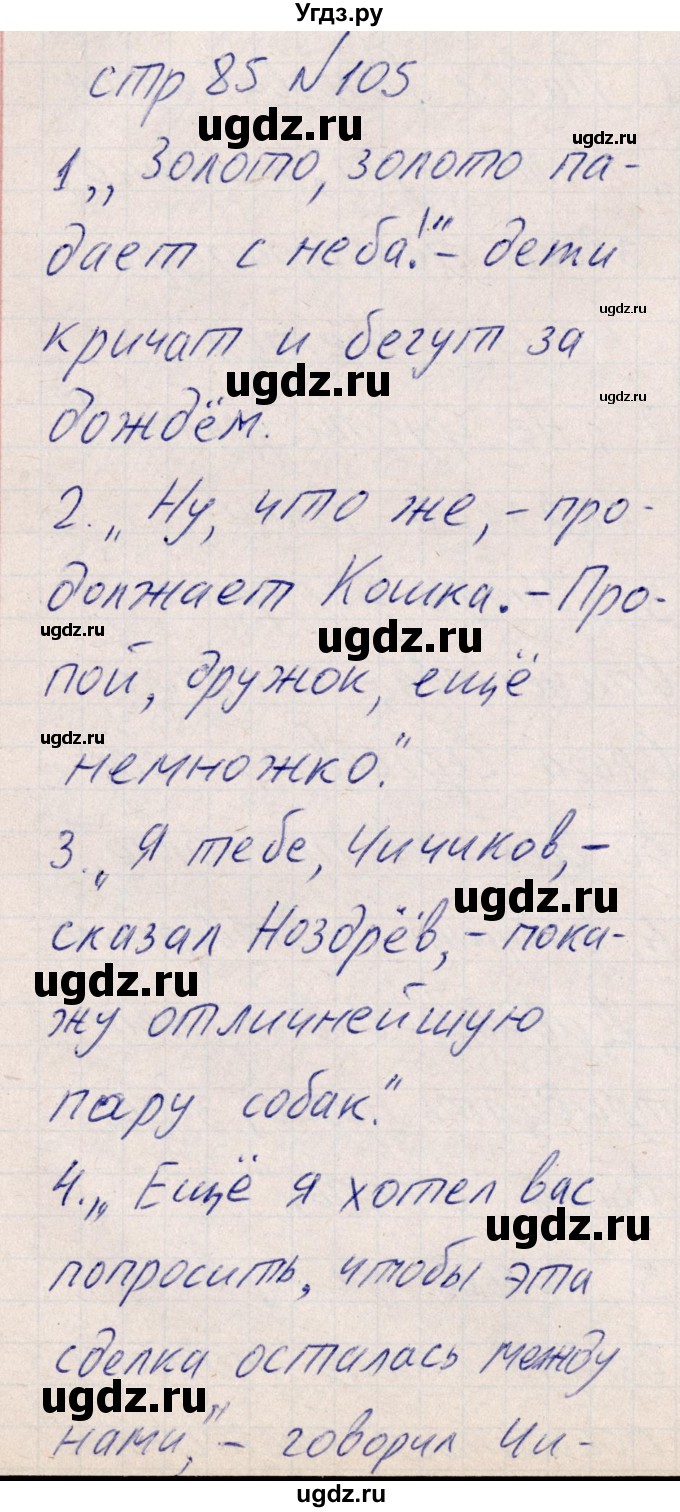 Угдз.ру
стр 85 №105.
ugdz.ru
ugdz.ru
1 „ Золото, золото па-
дает с неба!" - дети
ugdz.ru
кричат и бегут за
ugdz.ru
ugdz.ru
дождём.
2. „ Ну, что же, - про-
должает Кошка. - Про-
ugdz.ru
ugdz.ru
пой, дружок, ещё
ugdz.ru
немножко."
3. „ Я тебе, Чичиков, -
ugdz.ru
сказал Ноздрёв, - пока-
ugdz.ru
жу отличнейшую
пару собак."
4. „ Ещё я хотел вас
ugdz.ru
попросить, чтобы эта
сделка осталась между
ugdz.ru
нами," - говорил Чи-
ugdz.ru